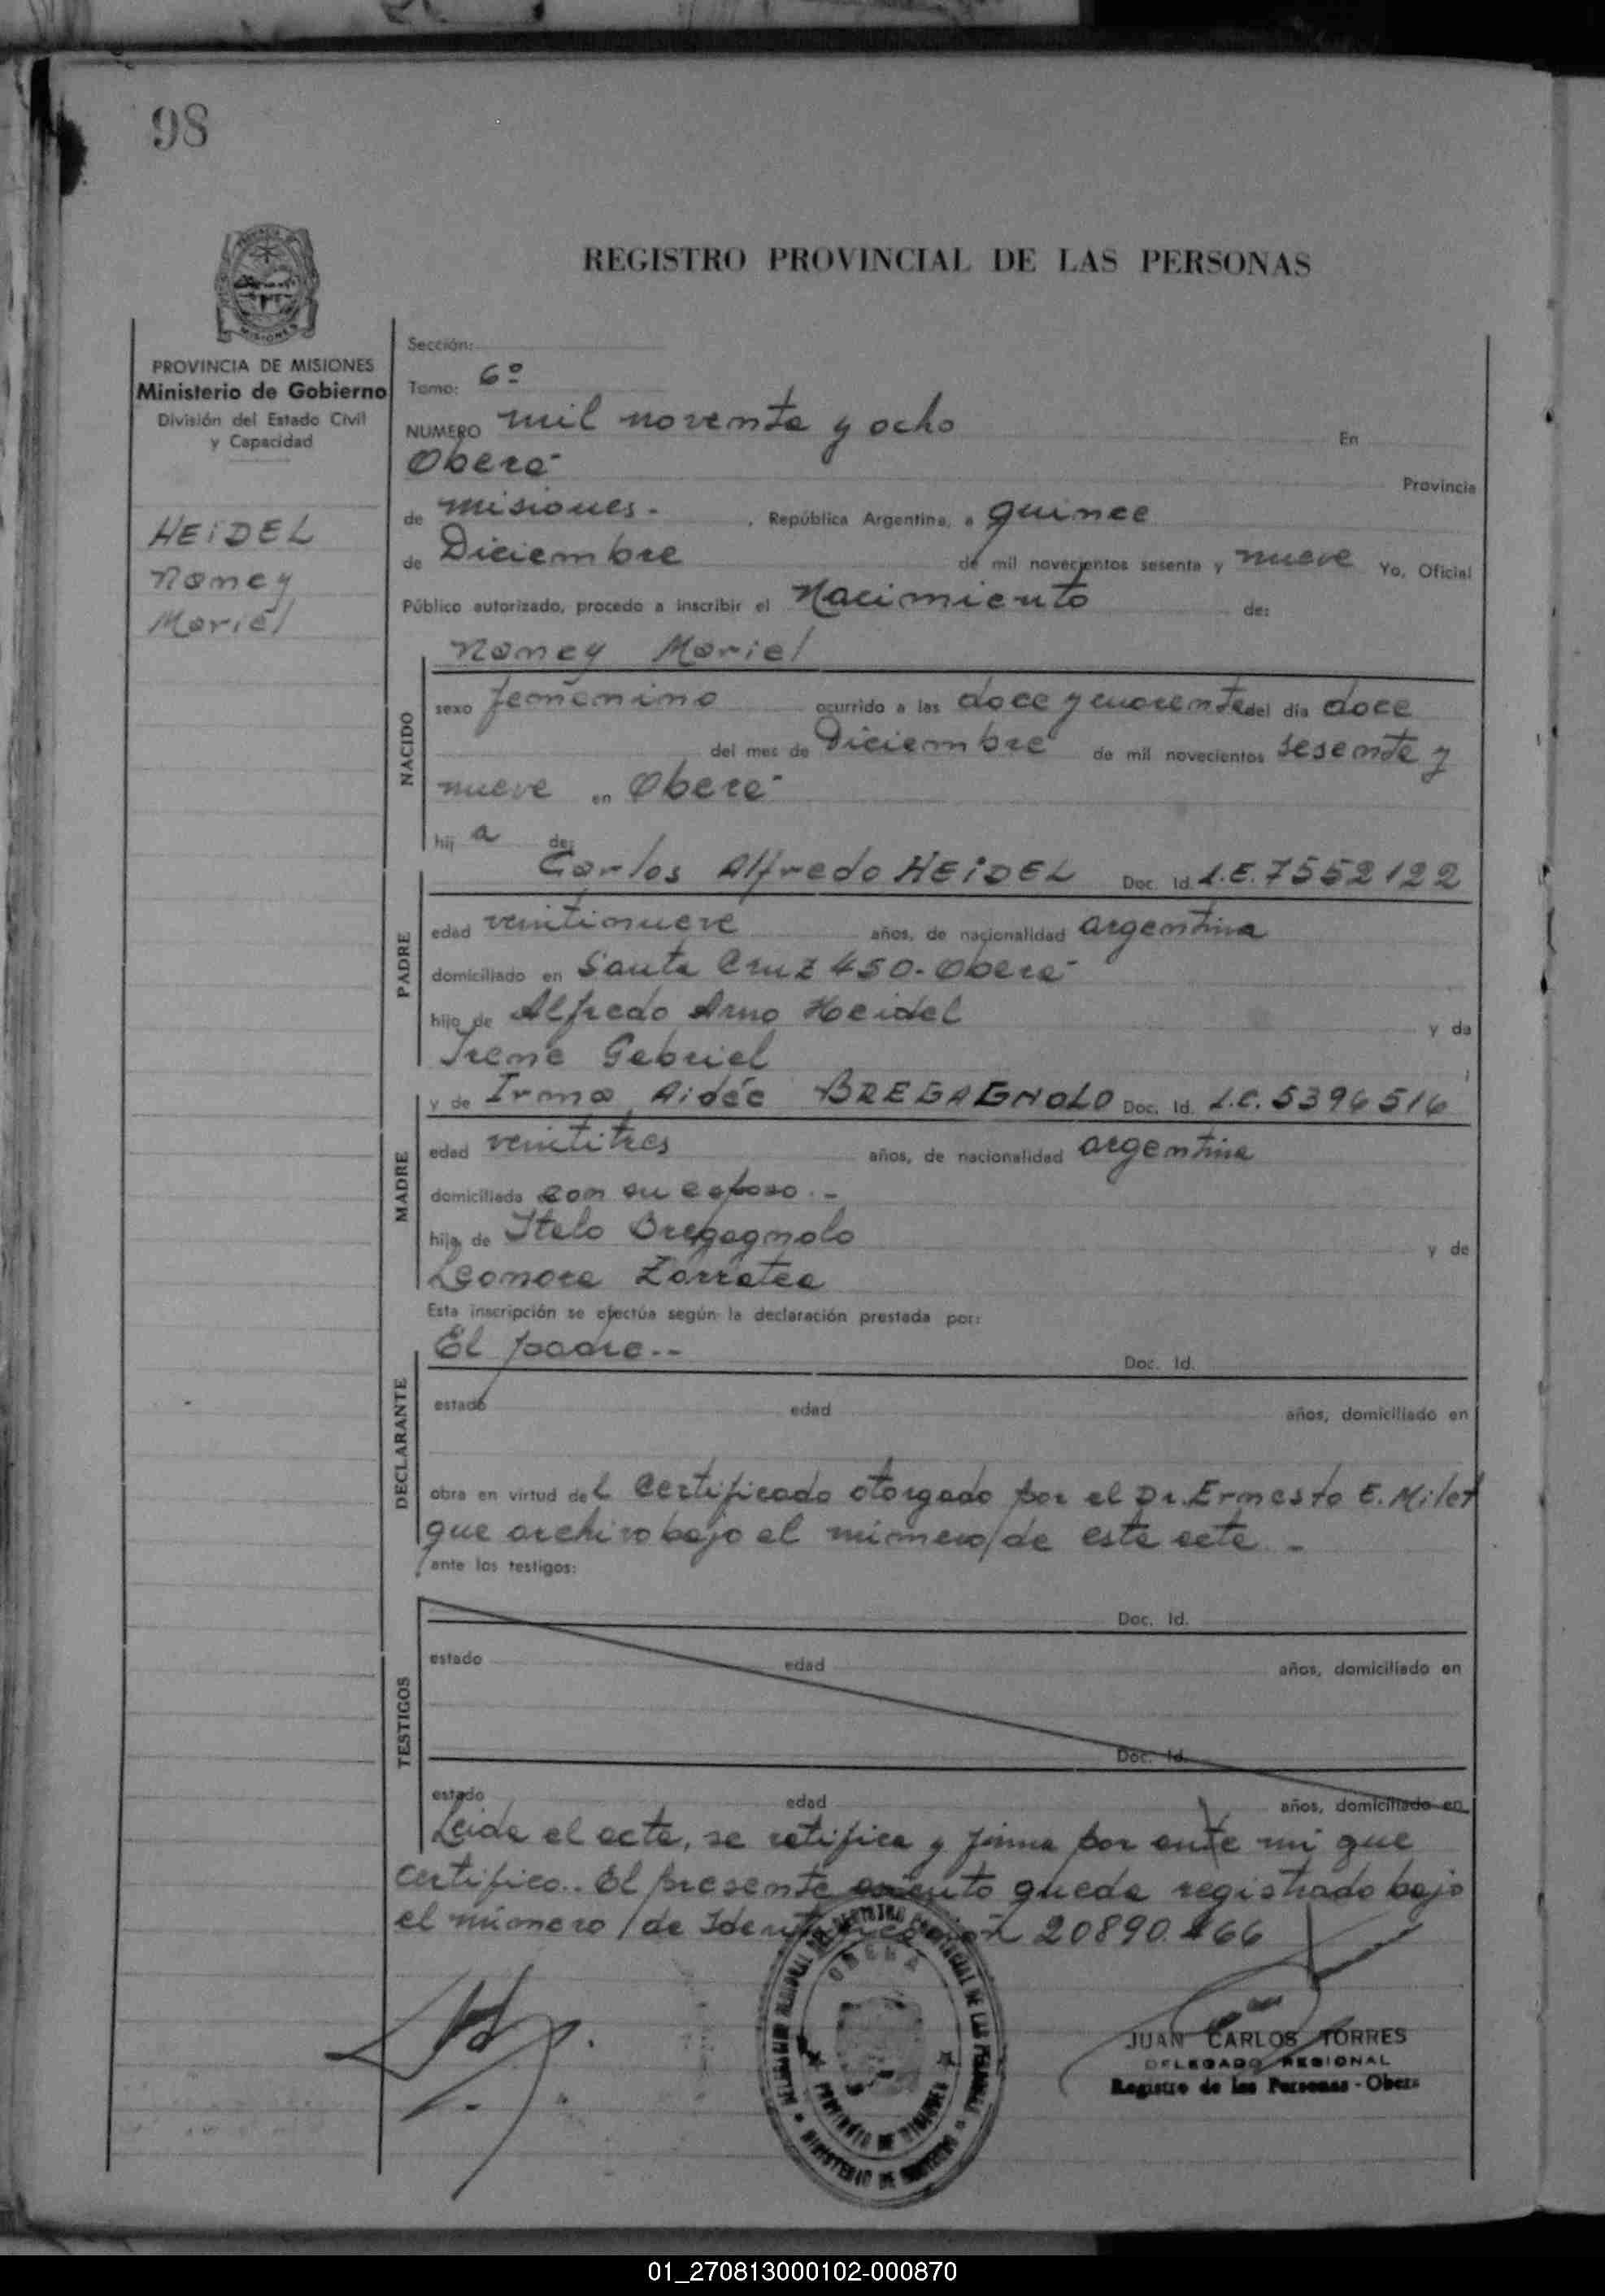 98
REGISTRO PROVINCIAL DE LAS PERSONAS
PROVINCIA DE MISIONES
Ministerio de Gobierno
División del Estado Civil
y Capacidad
HEIDEL
Nancy
Mariel
Sección:
Tomo: 6º
NUMERO mil noventa y ocho En
Oberá Provincia
de misiones.- , República Argentina, a quince
de Diciembre de mil novecientos sesenta y nueve Yo, Oficial
Público autorizado, procedo a inscribir el Nacimiento de:
Nancy Mariel
NACIDO
sexo femenino ocurrido a las doce y cuarenta del día doce
del mes de Diciembre de mil novecientos sesenta y
nueve en Oberá
hij a de:
Carlos Alfredo HEIDEL Doc. Id. L.E. 7552122
PADRE
edad veintinueve años, de nacionalidad argentina
domiciliado en Santa Cruz 450- Oberá
hijo de Alfredo Arno Heidel y de
Irene Gabriel
y de Irma Aidée BREGAGNOLO Doc. Id. L.C. 5396516
MADRE
edad veintitres años, de nacionalidad argentina
domiciliada con su esposo.-
hija de Italo Bregagnolo y de
Leonora Zarratea
Esta inscripción se efectúa según la declaración prestada por:
El padre.-- Doc. Id.
DECLARANTE
estado edad años, domiciliado en
obra en virtud del certificado otorgado por el Dr. Ernesto E. Milet
que archivo bajo el número de este acta.-
ante los testigos:
TESTIGOS
Doc. Id.
estado edad años, domiciliado en
Doc. Id.
estado edad años, domiciliado en
Leida el acta, se ratifica y firma por ante mi que
certifico.. El presente asiento queda registrado bajo
el número de Identificación 20890.466
OBERA
PROVINCIA DE MISIONES
MINISTERIO DE GOBIERNO
JUAN CARLOS TORRES
DELEGADO REGIONAL
Registro de las Personas - Oberá
01_270813000102-000870